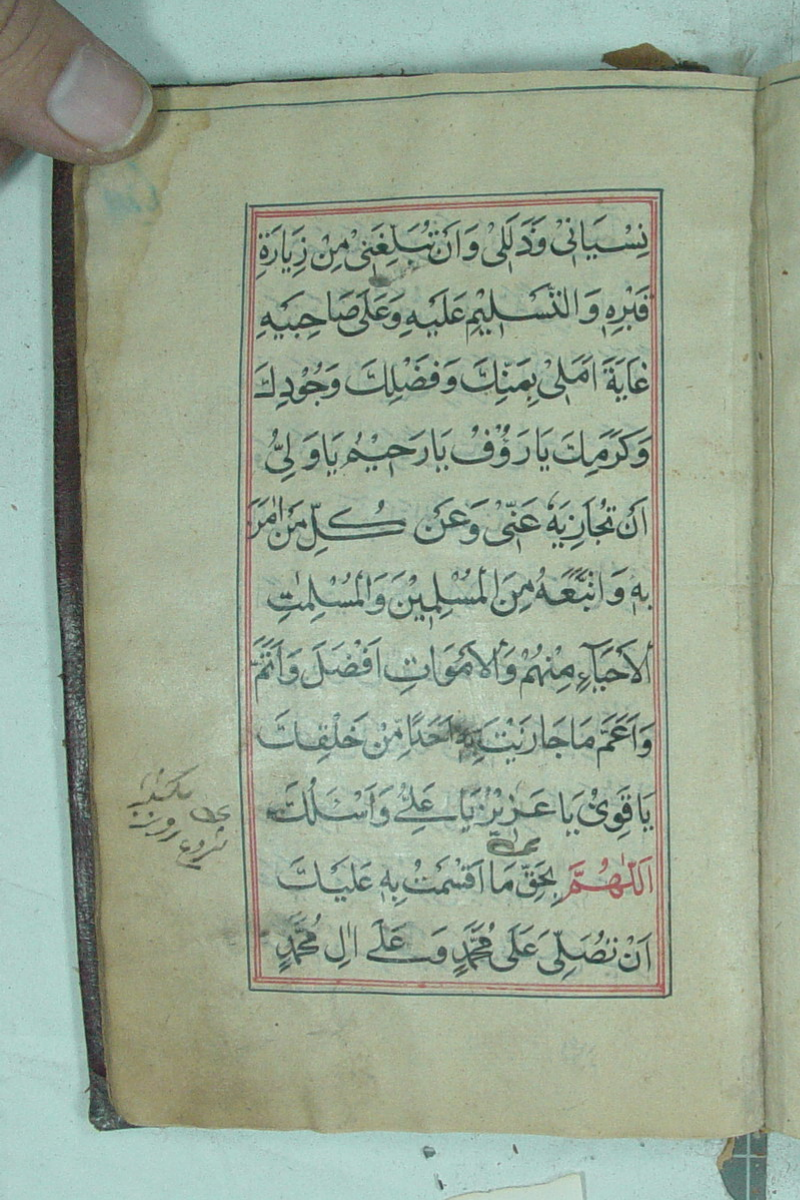 نِسْيَانِيْ وَذَلَلِيْ وَاَنْ تُبَلِّغَنِيْ مِنْ زِيَارَةِ
قَبْرِهٖ وَالتَّسْلِيْمِ عَلَيْهِ وَعَلٰى صَاحِبَيْهِ
غَايَةَ اَمَلِيْ بِمَنِّكَ وَفَضْلِكَ وَجُوْدِكَ
وَكَرَمِكَ يَا رَؤُفُ يَا رَحِيْمُ يَا وَلِيُّ
اَنْ تُجَازِيَهٗ عَنِّيْ وَعَنْ كُلِّ مَنْ اٰمَنَ
بِهٖ وَاتَّبَعَهُ مِنَ الْمُسْلِمِيْنَ وَالْمُسْلِمٰتِ
اَلْاَحْيَآءِ مِنْهُمْ وَالْاَمْوَاتِ اَفْضَلَ وَاَتَمَّ
وَاَعَمَّ مَا جَازَيْتَ بِهٖ اَحَدًا مِّنْ خَلْقِكَ
يَا قَوِيُّ يَا عَزِيْزُ يَا عَلِيُّ وَاَسْئَلُكَ
اَللّٰهُمَّ بِحَقِّ مَا اَقْسَمْتُ بِهٖ عَلَيْكَ
اَنْ تُصَلِّيَ عَلٰى مُحَمَّدٍ وَّعَلٰى اٰلِ مُحَمَّدٍ
شروع روز